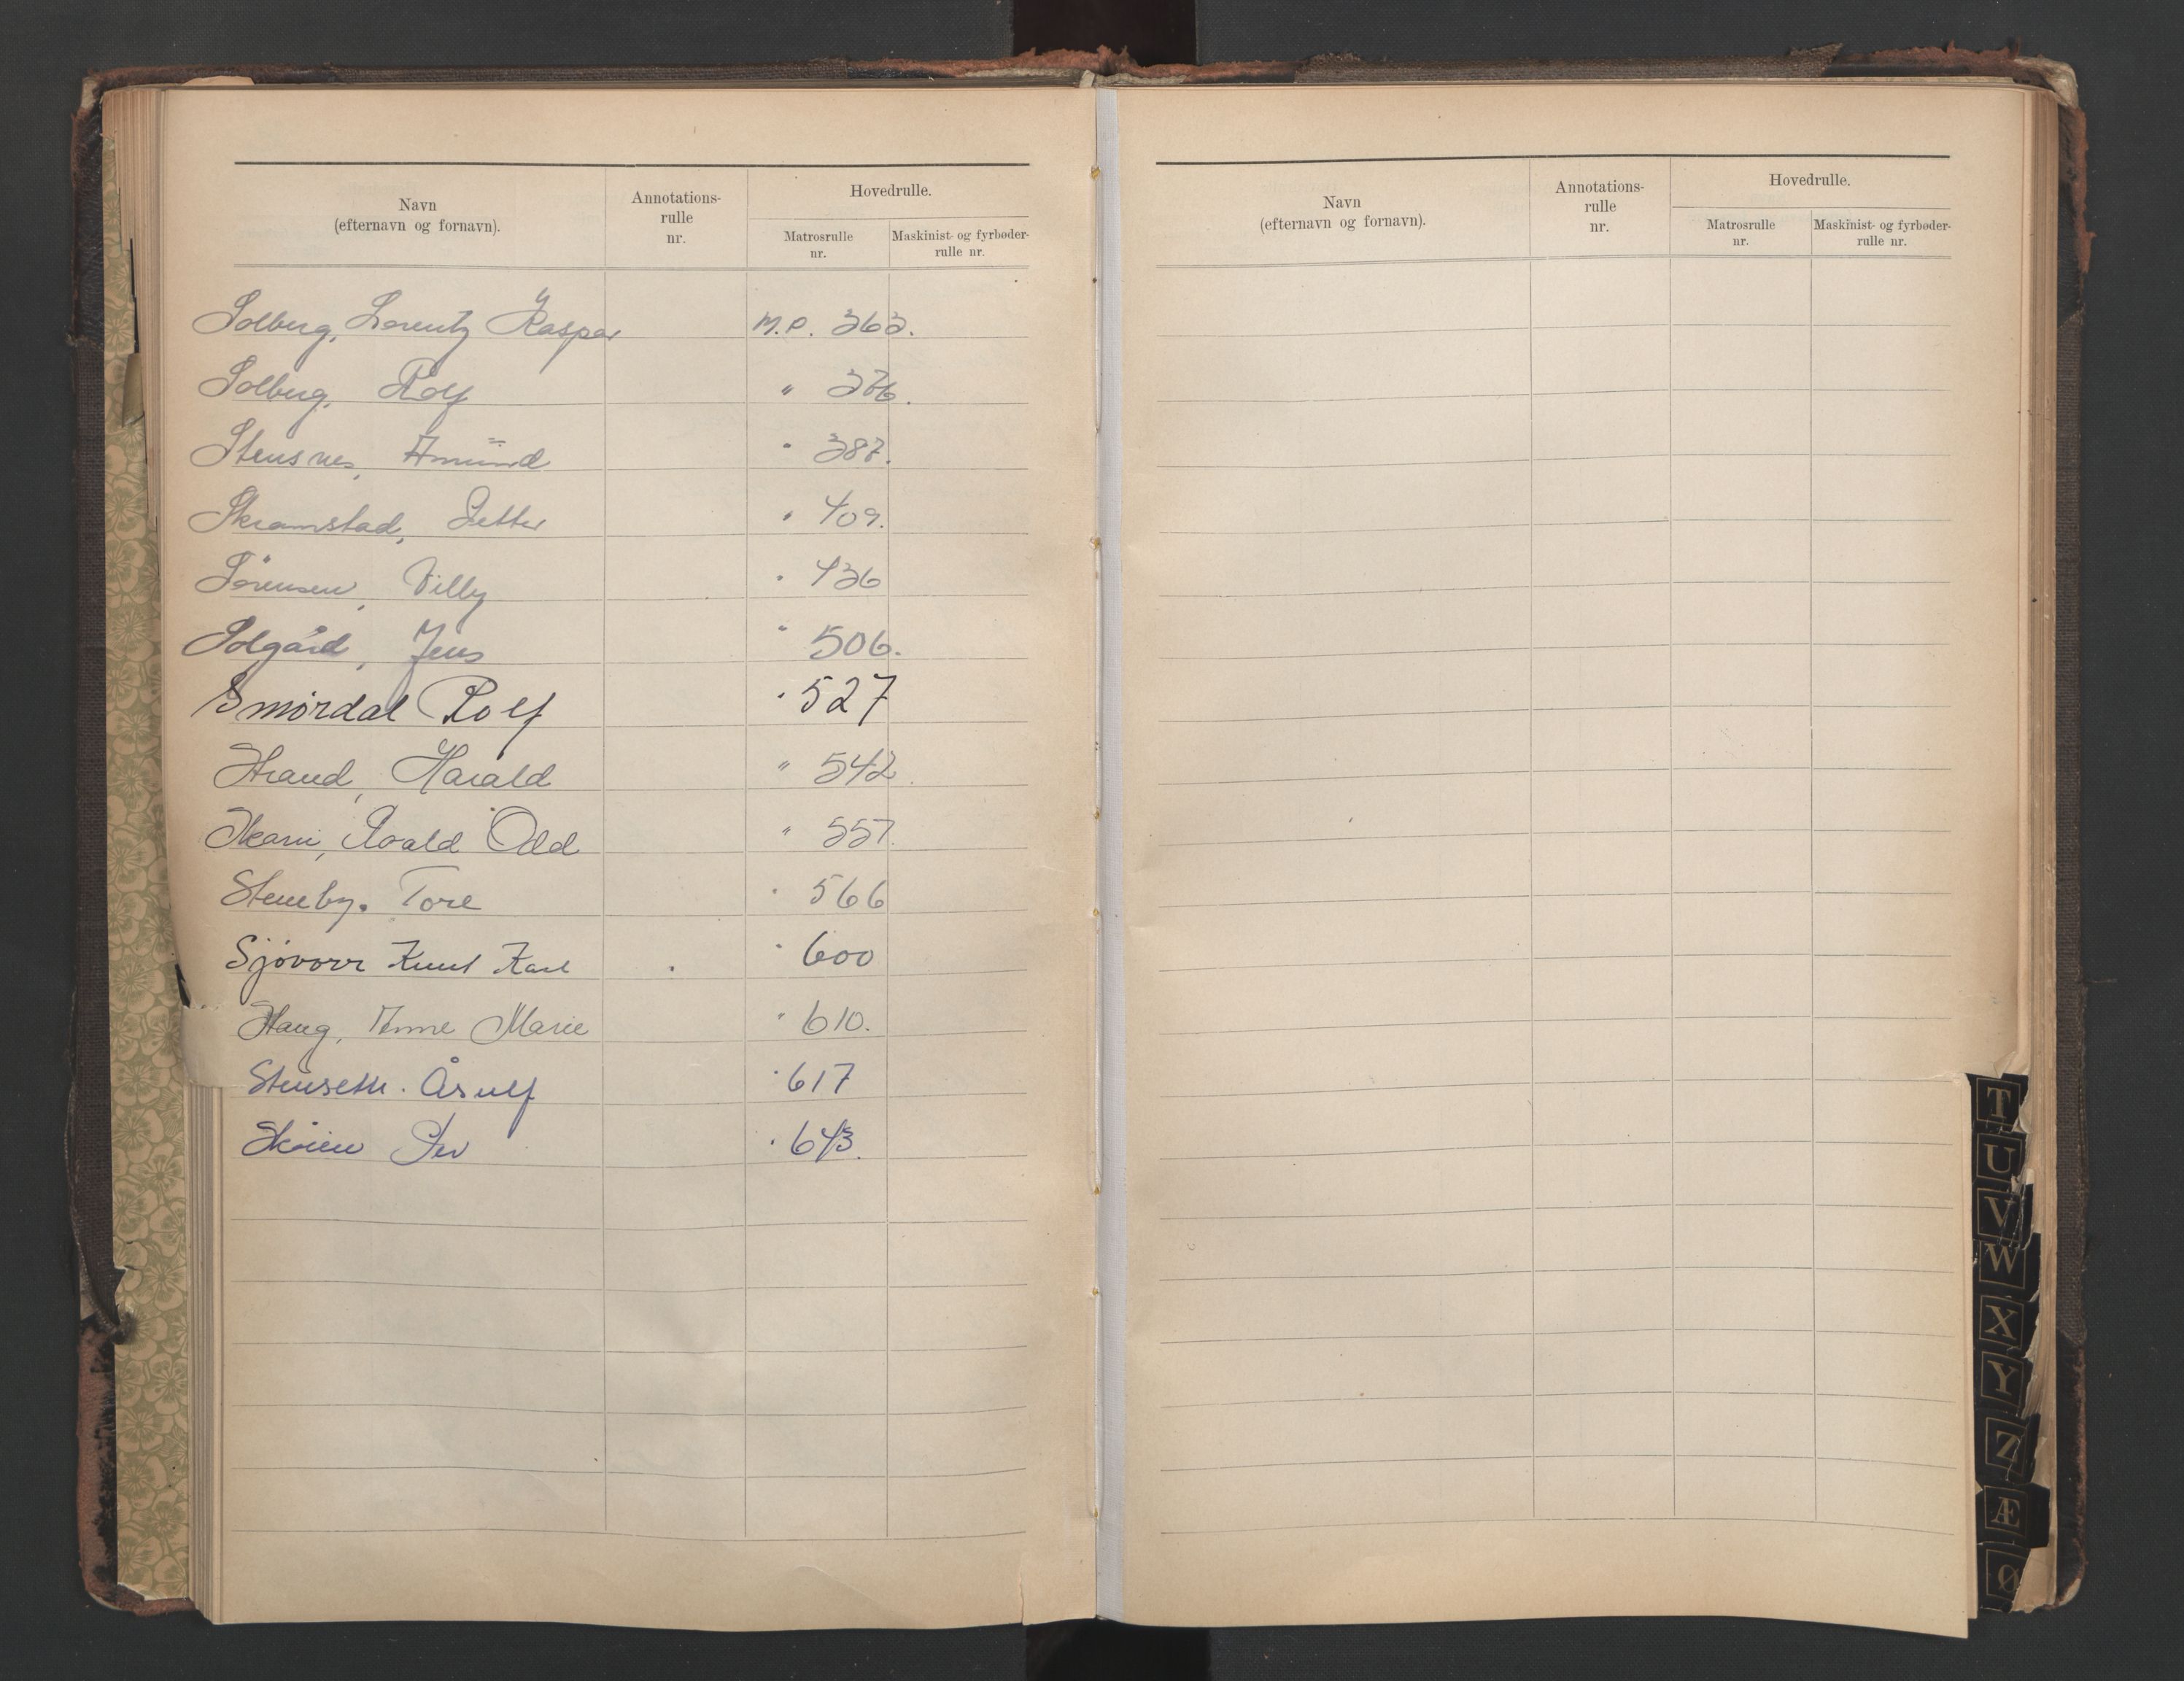 Navn
(efternavn og fornavn).
Annotations-
rulle
nr.
Hovedrulle.
Matrosrulle
nr.
Maskinist- og fyrbøder-
rulle nr.
Solberg, Lorentz Kaspar m.p. 363.
Solberg, Rolf " 376.
Stensnes, Amund " 387.
Skramstad, Petter " 409.
Sørensen, Villy " 436
Solgård, Jens " 506.
Smørdal Rolf " 527
Strand, Harald " 542.
Skarvi, Roald Odd " 557.
Steneby. Tore " 566
Sjøvorr Knut Karl " 600
Stang, Anne Marie " 610.
Stenseth. Åsulf " 617
Skøien Per " 643.
Navn
(efternavn og fornavn).
Annotations-
rulle
nr.
Hovedrulle.
Matrosrulle
nr.
Maskinist- og fyrbøder-
rulle nr.
T
U
V
W
X
Y
Z
Æ
Ø